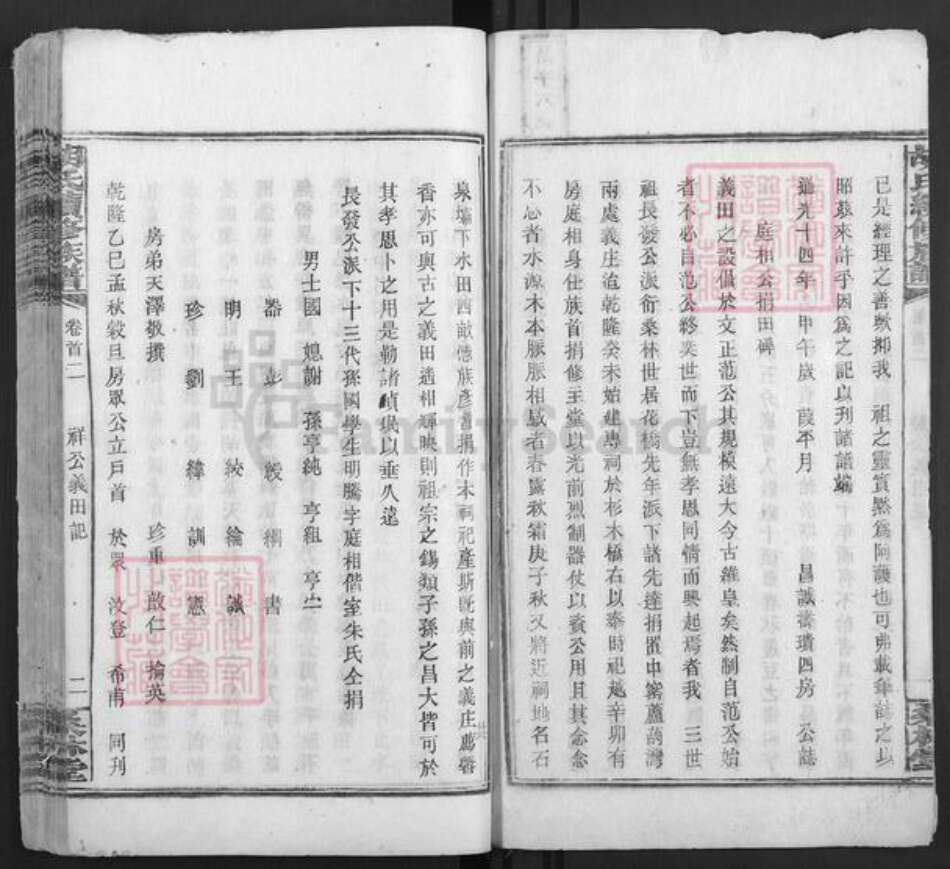 己是經理之善歟抑我 祖之靈實默為阿護也可弗載年誌之以
昭茲來許乎因為之記以刊諸譜端
道光十四年 甲午歲 葭平月 昌誠濤璜四房 公誌
庭相公捐田碑
義田之設倡於文正范公其規模遠大今古維皇矣然制自范公始
者不必自范公終奕世而下豈無孝思同情而興起焉者我 三世
祖長發公派衍桑林世居花橋先年派下諸先達捐置中窰蘆蒻灣
兩處義庄迨乾隆癸未始建專祠於杉木橋右以奉時祀越辛卯有
房庭相身仕族首捐修主堂以光前烈制器仗以資公用且其念念
不忘者水源木本脈脈相感者春露秋霜庚子秋又將近祠地名石
泉塘下水田四畝憑族彥書捐作本祠祀產斯既與前之義庄薦馨
香亦可與古之義田遙相輝映則祖宗之錫類子孫之昌大皆可於
其孝思卜之用是勒諸貞珉以垂久遠
長發公派下十三代孫國學生明騰字庭相偕室朱氏仝捐
男士國 媳謝 孫亨純 亨組
器 彭 綬 綱 書
明 王 紱 綸 誠
珍 劉 緯 訓 憲
房弟天澤敬撰 珍重 啟仁 掄英
乾隆乙巳孟秋穀旦房眾公立戶首 於眾 汶登 希甫 同刊
胡氏續修族譜 卷首二 祥公義田記 二 桑林堂
胡氏續修族譜
桑林堂
FamilySearch